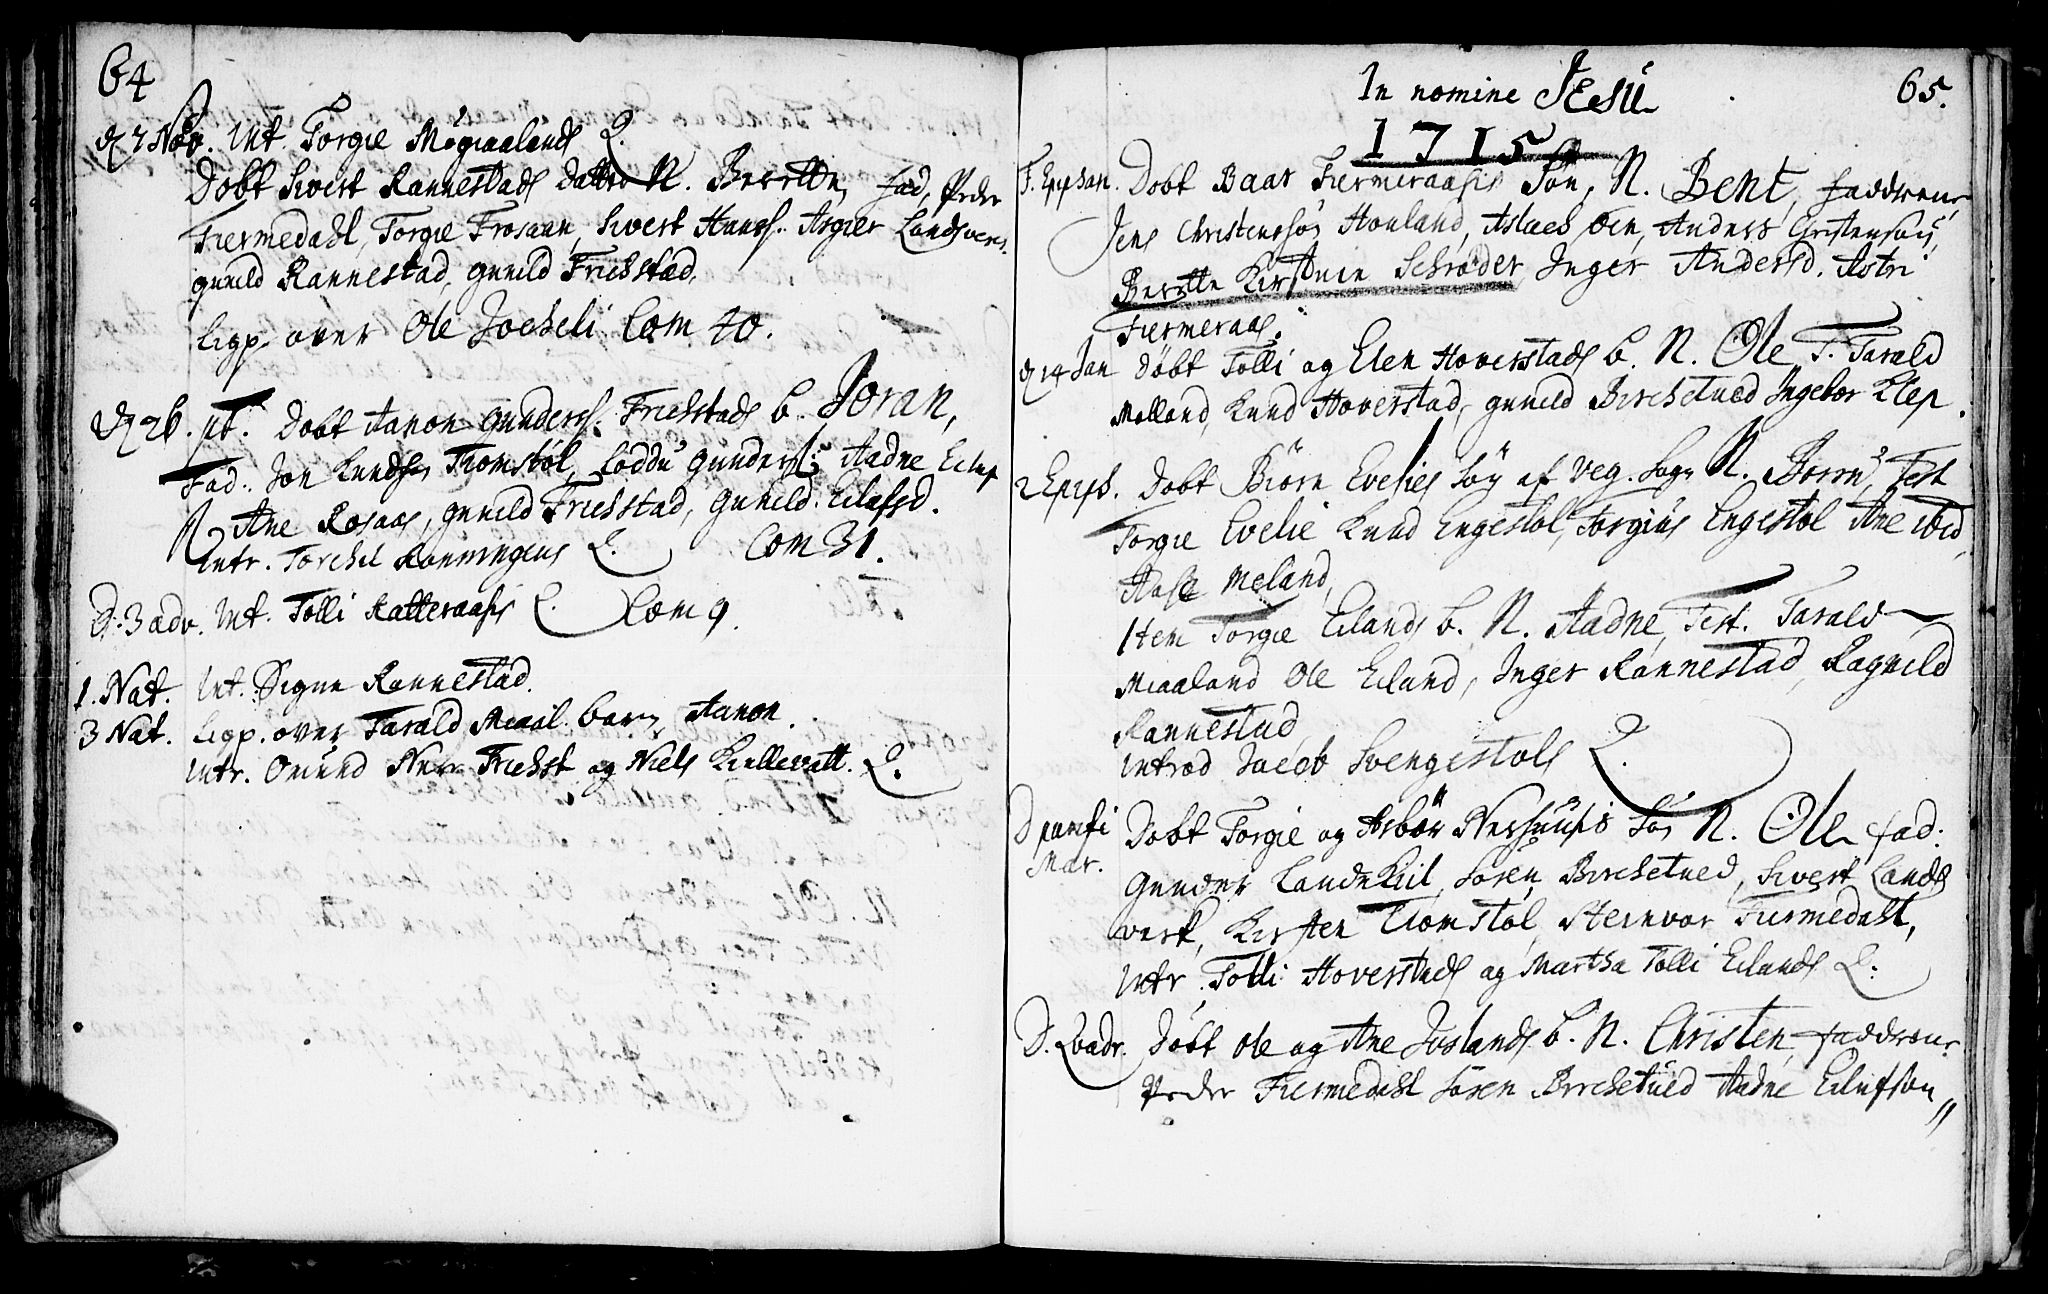 64
d 7 Nov. Int. Torgie Miaalands Q.
Døbt Sivert Rannestads datter N. Berette, fad, Peder
Fiermedahl, Torgie Frosaan, Sivert Hans. Asgier Landsverk
gunild Rannestad, gunild Frichstad,
ligp. over Ole Com 40.
d 26. Dobt Aanon gunders. Frichstads b. Joran,
Fad. Jon Knuds Tromstøl, Loddu gunders. Aadne Eilup
Ane Rosaas, gunild Frichstad, gunild Eilefsd.
Intr. Torchel Rønningens Q. Com 31.
D. 3 adv. Int. Tolli Katteraasis Q. Com 9.
1. Nat. Int. Signe Rannestad.
3 Nat. Ligp. over Tarald Miaal. barn Aanon.
Intr. Omund Frichst og Niels Kiellevatt. Q.
65.
In nomine Jesu
1715
F. Epiphan. Dobt Baar Fiermeraasis Søn, N. Bent, faddrene
Jens Christensøn Honland, Aslach Øen, Anders Christensøn,
Berette Kirstine Schrøder Inger Andersd. Astri
Fiermeraas.
d 14 Jan Døbt Tolli og Elen Hoverstads b. N. Ole T. Tarald
Molland, Knud Hoverstad, gunild Birchetued Ingebor Klep.
2 Epiph. Dobt Biørn Evelies søn af Veg. Sogn N. Biørn, Test
Torgie Evelie Knud Engestøl, Torgius Engestøl Ane ibid,
Aase Meland,
Item Torgie Eilands b. N. Aadne, Test. Tarald
Miaaland Ole Eiland, Inger Rannestad, Ragnild
Rannestad
Introd Jacob Svengestøls Q.
D purifi Dobt Torgie og Asbør Neshuusis søn N. Ole fad:
Mar. Gunder Landekiil, Søren Birchetued, Sivert Lands
verk, Kirsten Tromstøl, Steinvor Fiermedahl,
Intr. Tolli Hoverstads og Martha Tolli Eilands Q.
D. Qvadr. Døbt Ole og Ane Juslands b. N. Christen, faddrene
Peder Fiermedahl Søren Birchetued Aadne Eilufson